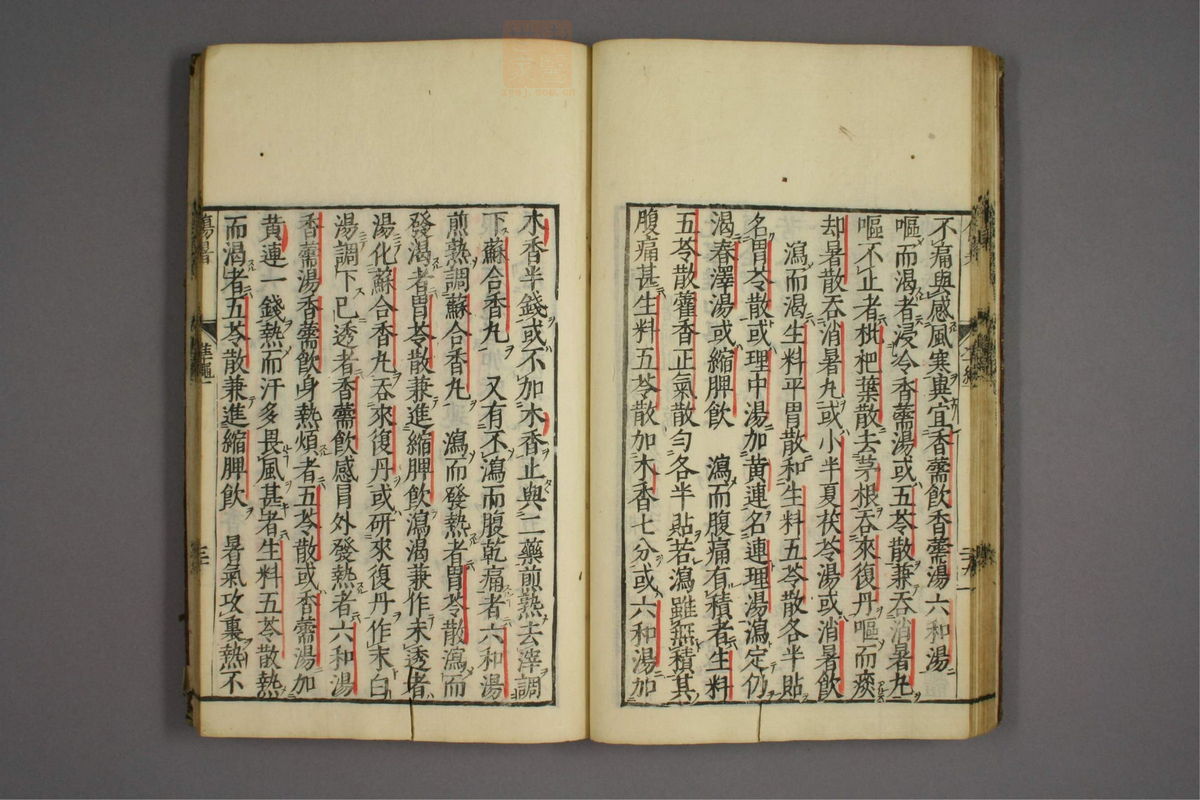 不痛與感風寒與宜香薷飲香薷湯六和湯
嘔而渴者浸冷香薷湯或五苓散兼吞消暑丸
嘔不止者枇杷葉散去茅根吞來復丹嘔而痰
却暑散吞消暑丸或小半夏茯苓湯或消暑飲
瀉而渴生料平胃散和生料五苓散各半貼
名胃苓散或理中湯加黃連名連理湯瀉定仍
渴春澤湯或縮脾飲 瀉而腹痛有積者生料
五苓散藿香正氣散勻各半貼若瀉雖無積其
腹痛甚生料五苓散加木香七分或六和湯加
木香半錢或不加木香止與二藥煎熟去滓調
下蘇合香丸 又有不瀉而腹乾痛者六和湯
煎熟調蘇合香丸 瀉而發熱者胃苓散瀉而
發渴者胃苓散兼進縮脾飲瀉渴兼作未透者
湯化蘇合香丸吞來復丹或研來復丹作末白
湯調下已透者香薷飲感冒外發熱者六和湯
香薷湯香薷飲身熱煩者五苓散或香薷湯加
黃連一錢熱而汗多畏風甚者生料五苓散熱
而渴者五苓散兼進縮脾飲 暑氣攻裏熱不
傷暑